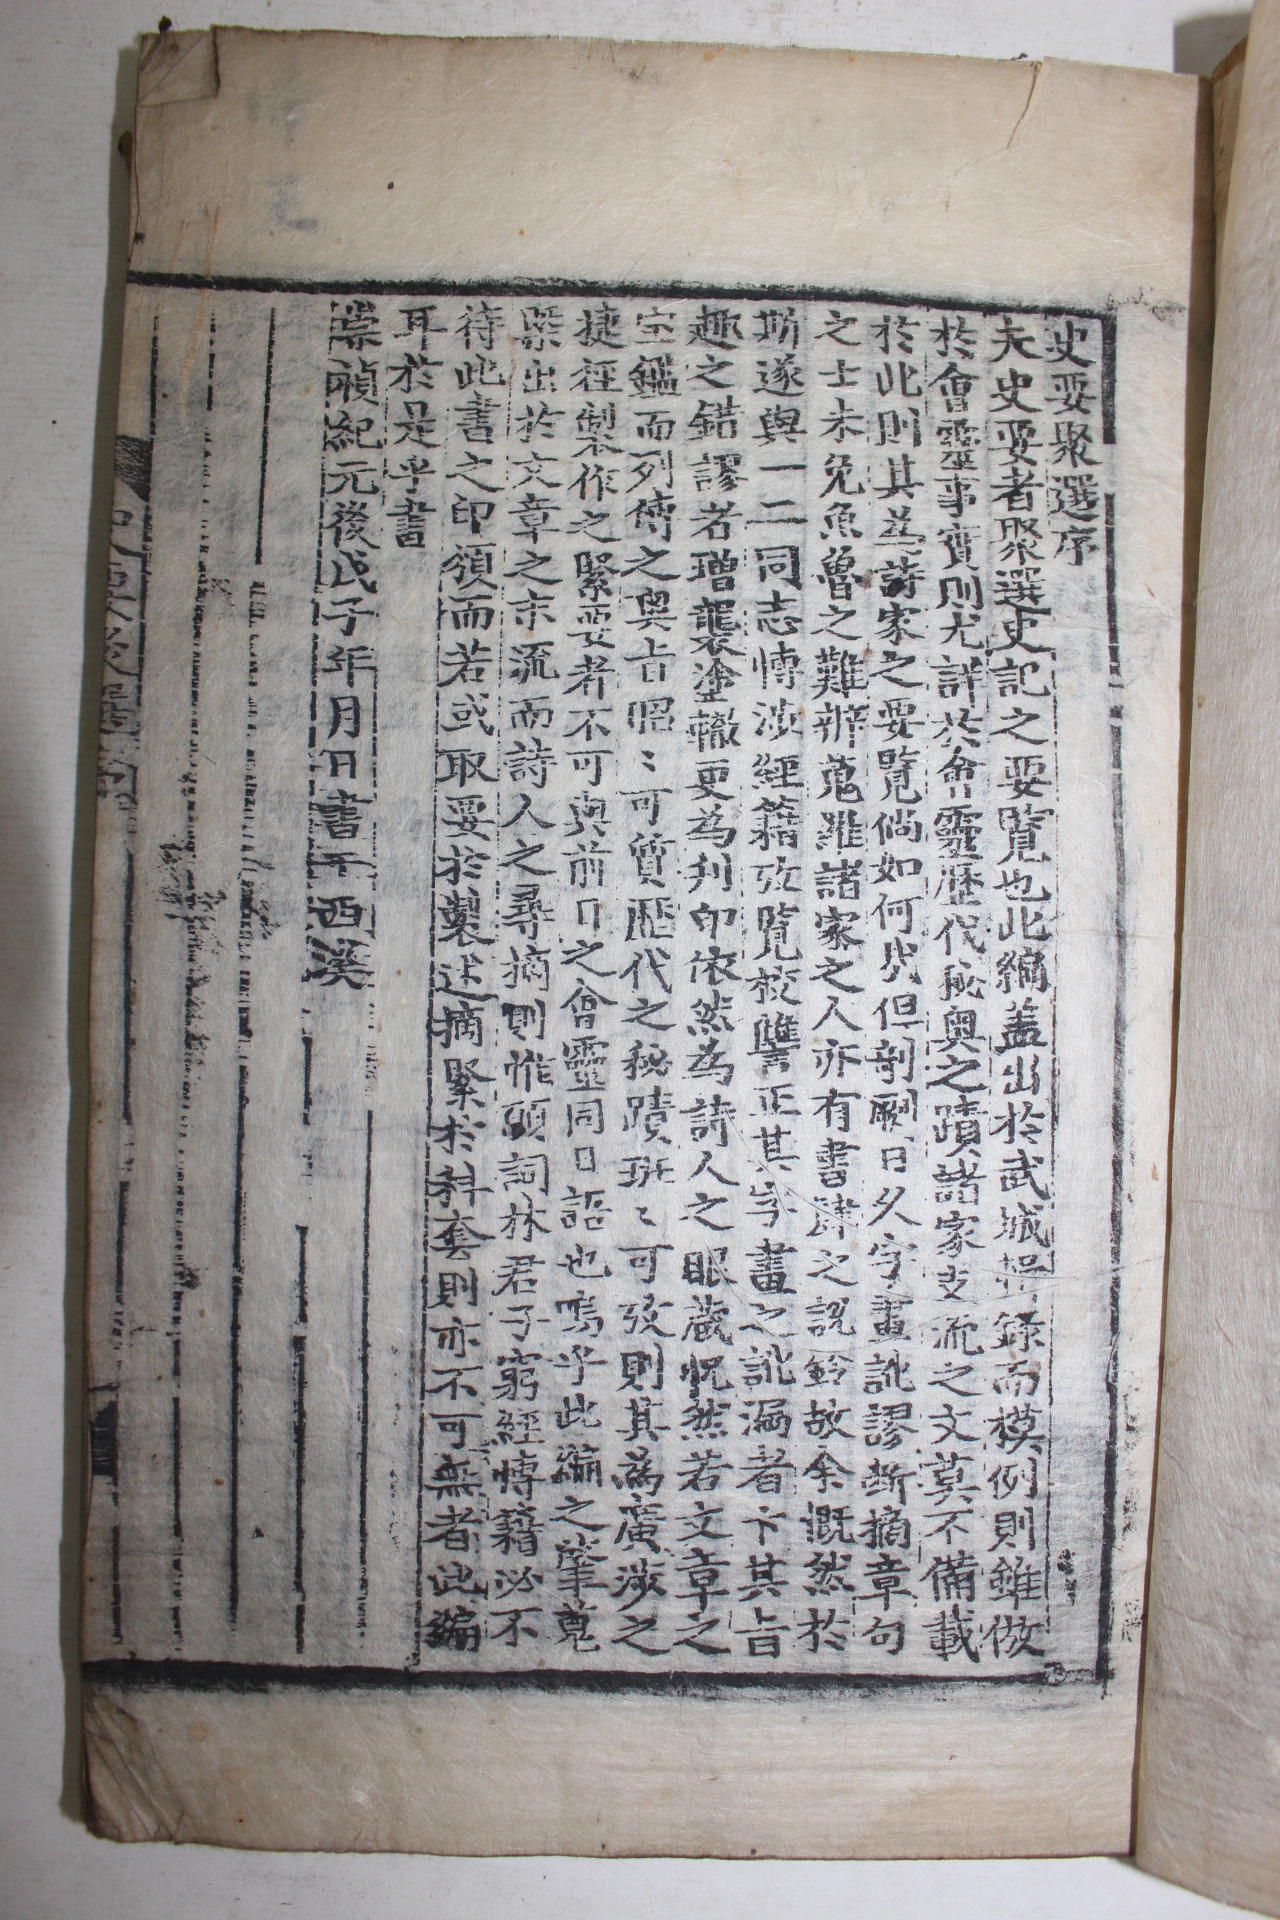 史要聚選序
夫史要者聚選史記之要覽也此編盖出於武城抄錄而模例則雖倣
於會靈事實則尤詳於會靈歷代秘奧之蹟諸家支流之文莫不備載
於此則其為詩家之要覽倘如何哉但剞劂日久字畫訛謬斯摘章句
之士未免魚魯之難辨蒐羅諸家之人亦有書肆之說鈴故余慨然於
斯遂與一二同志愽涉經籍攷覽校讐正其字畫之訛漏者卞其旨
趣之錯謬者增襲塗轍更為刋印依然為詩人之眼藏怳然若文章之
宝鑑而列傳之奧旨昭〻可質歷代之秘蹟班〻可攷則其為廣涉之
捷徑製作之緊要者不可與前日之會靈同日語也嗚乎此編之肇蒐
槩出於文章之末流而詩人之尋摘則惟頭詞林君子窮經愽籍必不
待此書之印頒而若或取要於製述摘緊於科套則亦不可無者此編
耳於是乎書
崇禎紀元後戊子年月日書于西溪
史要聚選序